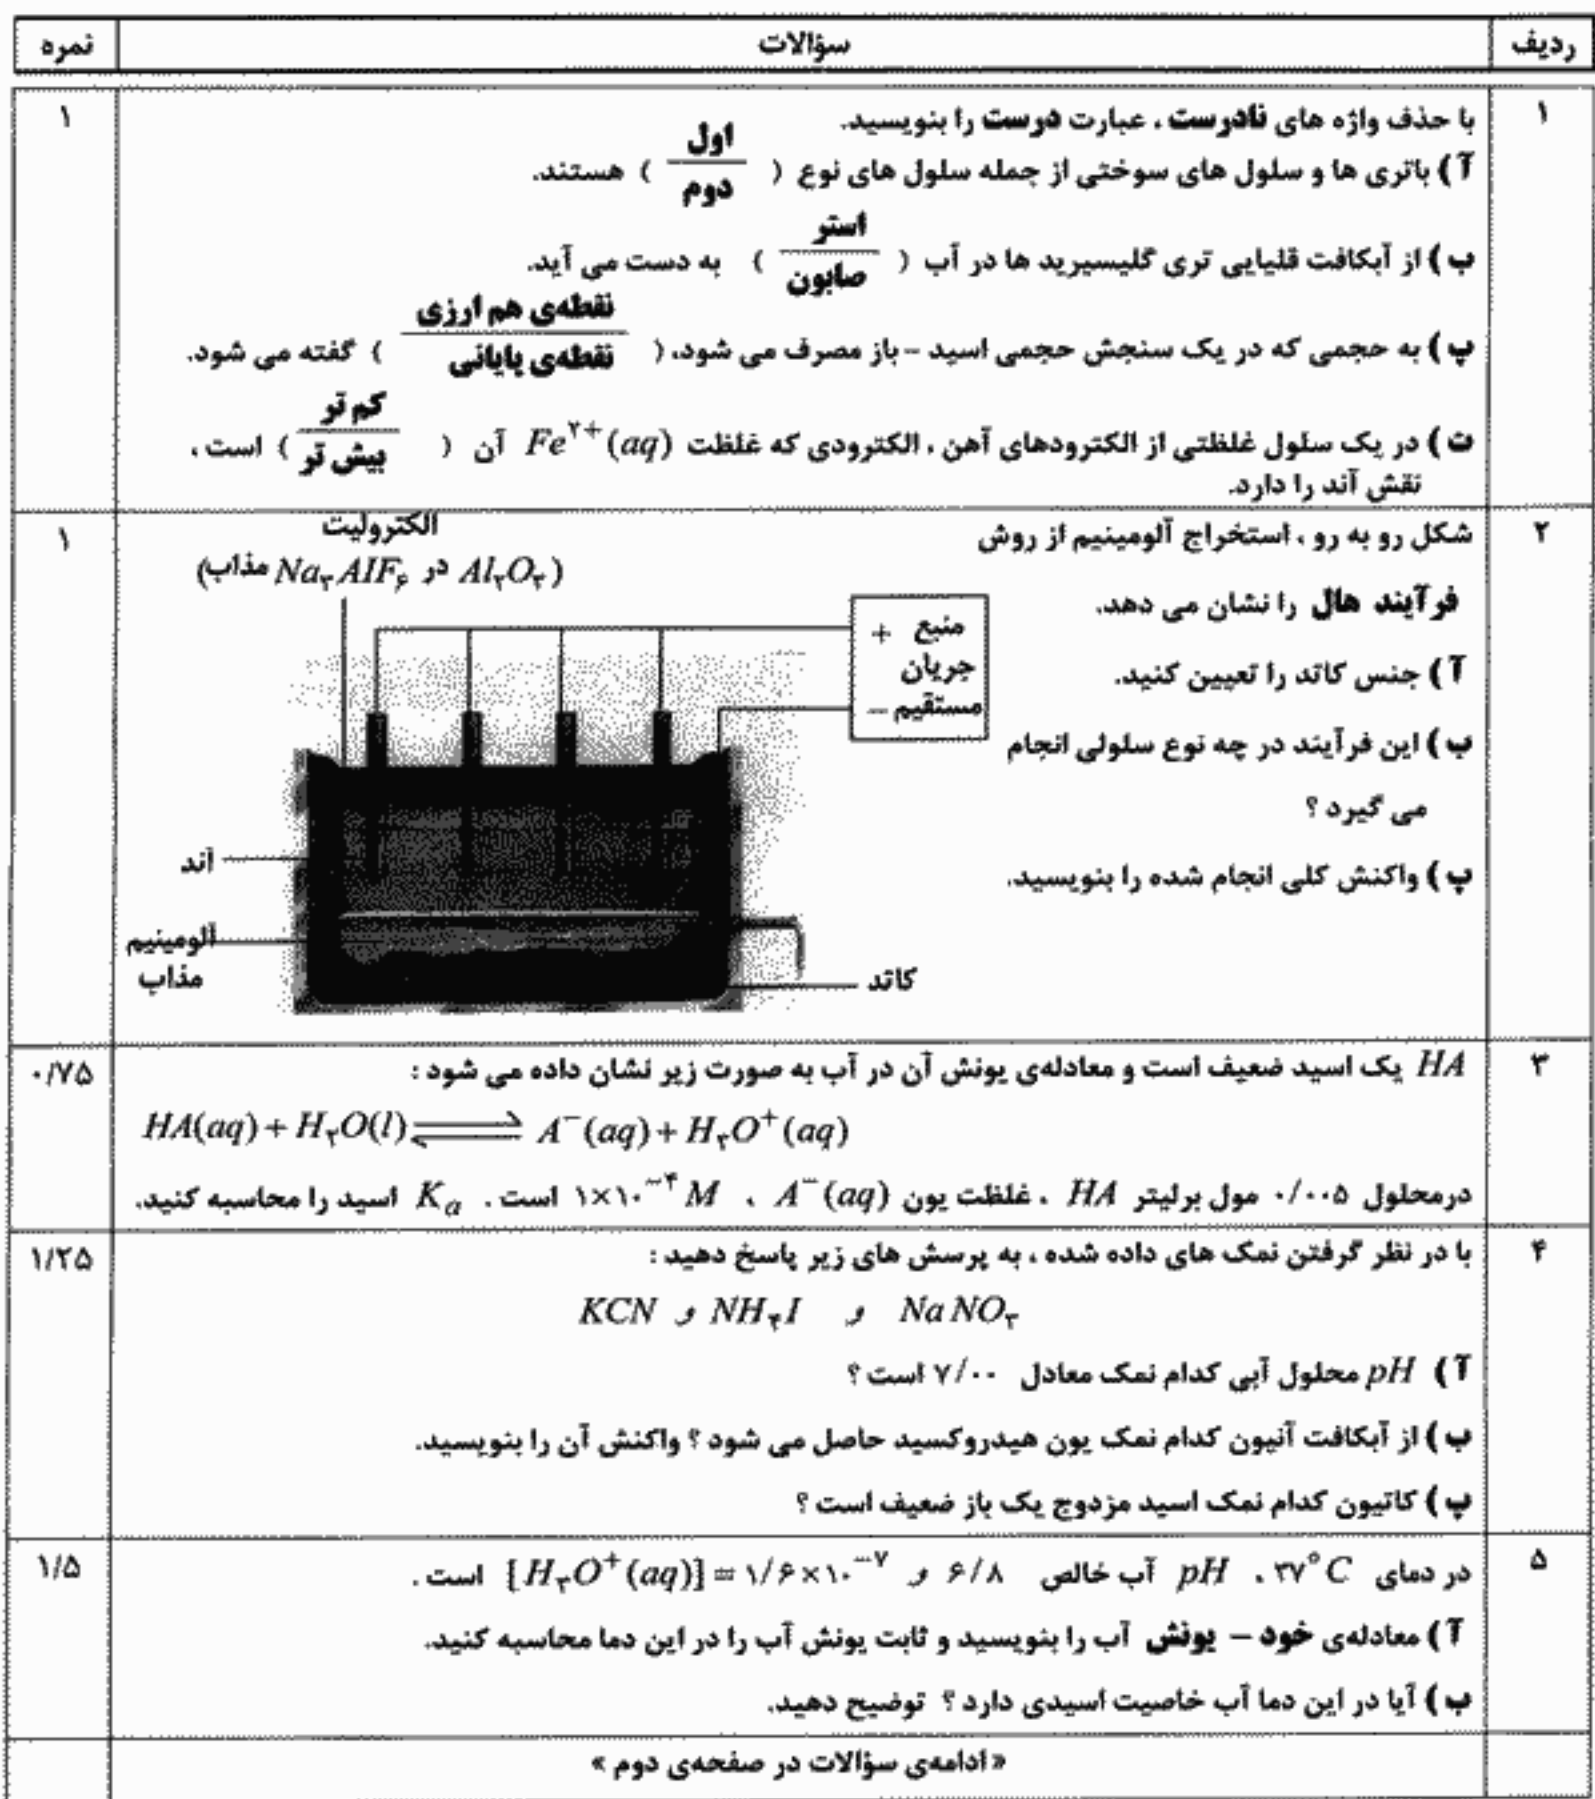 ردیف سؤالات نمره
۱ با حذف واژه های نادرست ، عبارت درست را بنویسید. ۱
آ ) باتری ها و سلول های سوختی از جمله سلول های نوع ( اول / دوم ) هستند.
ب ) از آبکافت قلیایی تری گلیسیرید ها در آب ( استر / صابون ) به دست می آید.
پ ) به حجمی که در یک سنجش حجمی اسید – باز مصرف می شود، ( نقطه‌ی هم ارزی / نقطه‌ی پایانی ) گفته می شود.
ت ) در یک سلول غلظتی از الکترودهای آهن ، الکترودی که غلظت Fe²⁺(aq) آن ( کم تر / بیش تر ) است ،
نقش آند را دارد.
۲ شکل رو به رو ، استخراج آلومینیم از روش ۱
فرآیند هال را نشان می دهد.
آ ) جنس کاتد را تعیین کنید.
ب ) این فرآیند در چه نوع سلولی انجام
می گیرد ؟
پ ) واکنش کلی انجام شده را بنویسید.
الکترولیت
(Al₂O₃ در Na₃AlF₆ مذاب)
منبع +
جریان
مستقیم –
آند
آلومینیم
مذاب
کاتد
۳ HA یک اسید ضعیف است و معادله‌ی یونش آن در آب به صورت زیر نشان داده می شود : ۰/۷۵
HA(aq) + H₂O(l) ⇌ A⁻(aq) + H₃O⁺(aq)
درمحلول ۰/۰۰۵ مول برلیتر HA ، غلظت یون A⁻(aq) ، ۱×۱۰⁻⁴ M است . Kₐ اسید را محاسبه کنید.
۴ با در نظر گرفتن نمک های داده شده ، به پرسش های زیر پاسخ دهید : ۱/۲۵
KCN و NH₄I و NaNO₃
آ ) pH محلول آبی کدام نمک معادل ۷/۰۰ است ؟
ب ) از آبکافت آنیون کدام نمک یون هیدروکسید حاصل می شود ؟ واکنش آن را بنویسید.
پ ) کاتیون کدام نمک اسید مزدوج یک باز ضعیف است ؟
۵ در دمای ۳۷°C ، pH آب خالص ۶/۸ و [H₃O⁺(aq)] = ۱/۶×۱۰⁻⁷ است . ۱/۵
آ ) معادله‌ی خود – یونش آب را بنویسید و ثابت یونش آب را در این دما محاسبه کنید.
ب ) آیا در این دما آب خاصیت اسیدی دارد ؟ توضیح دهید.
« ادامه‌ی سؤالات در صفحه‌ی دوم »